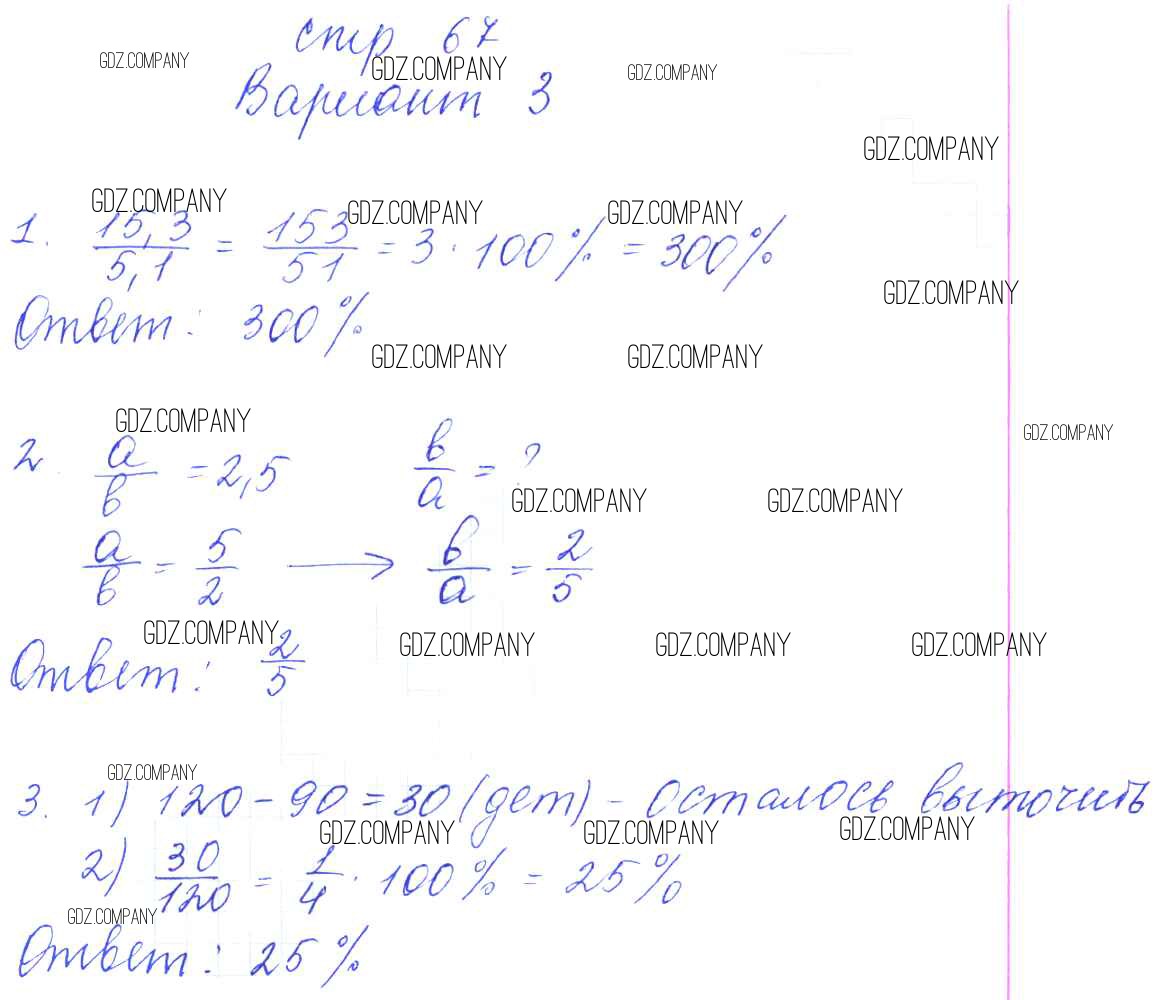 стр 67
GDZ.COMPANY GDZ.COMPANY GDZ.COMPANY
Вариант 3
GDZ.COMPANY
GDZ.COMPANY GDZ.COMPANY GDZ.COMPANY
1. 15,3/5,1 = 153/51 = 3 · 100% = 300%
GDZ.COMPANY
Ответ: 300%
GDZ.COMPANY GDZ.COMPANY
GDZ.COMPANY GDZ.COMPANY
2. a/в = 2,5 в/a = ?
GDZ.COMPANY GDZ.COMPANY
a/в = 5/2 → в/a = 2/5
GDZ.COMPANY GDZ.COMPANY GDZ.COMPANY GDZ.COMPANY
Ответ: 2/5
GDZ.COMPANY
3. 1) 120 - 90 = 30 (дет) - осталось выточить
GDZ.COMPANY GDZ.COMPANY GDZ.COMPANY
2) 30/120 = 1/4 · 100% = 25%
GDZ.COMPANY
Ответ: 25%